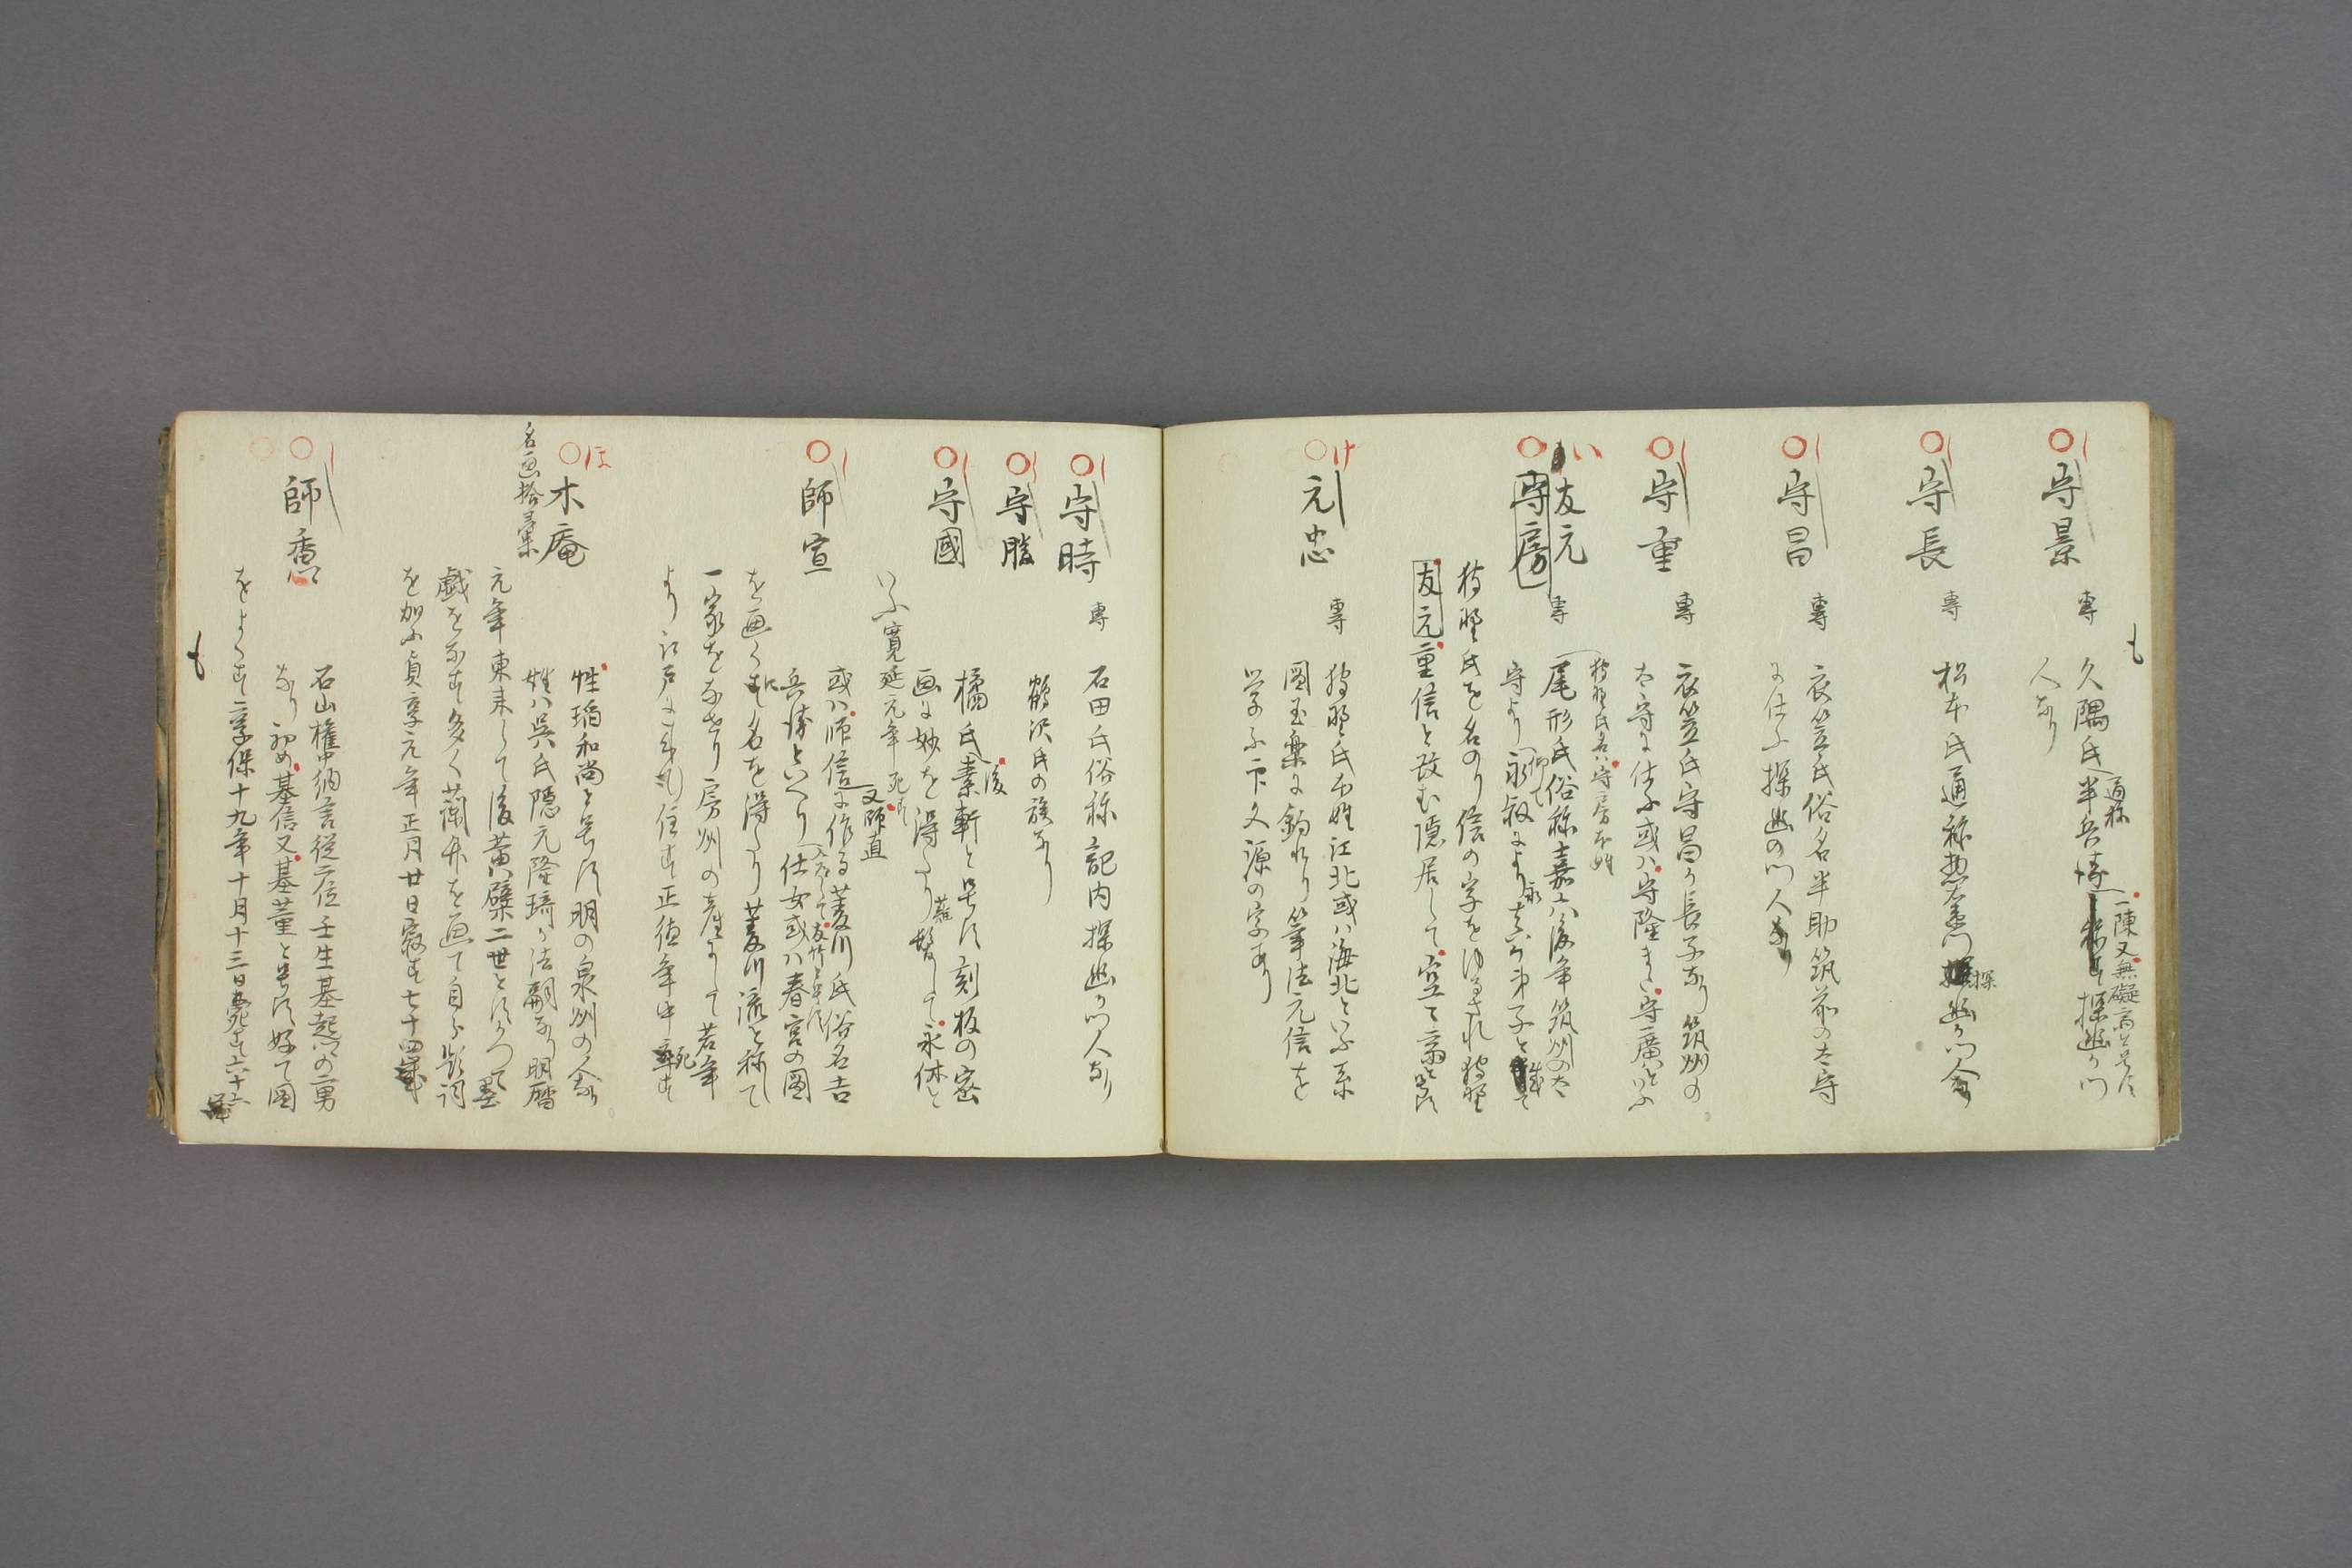 も
守景
專
久隅氏半兵衛と称す探幽の門
通称
一陳又無礙斎と号す
人なり
守長
專
松本氏通称惣右衛門探幽の門人なり
探
守昌
專
衣笠氏俗名半助筑前の太守
に仕ふ探幽の門人なり
守重
專
衣笠氏守昌の長子なり筑州の
太守に仕ふ或ハ守隆また守廣といふ
い
友元
守房
專
狩野氏名ハ守房本姓
尾形氏俗称嘉六後年筑州の太
守より永叔によりその弟子と成て
仰て
永
狩野氏を名のり信の字をゆるされ狩野
友元重信と改む隠居して
け
元忠
專
狩野氏本姓江北或ハ海北といふ系
圖玉樂に釣れり筆法元信を
学ふ印文源の字あり
守時
專
石田氏俗称記内探幽の門人なり
守勝
鶴沢氏の族なり
守國
橘氏素軒と号す刻板の密
後
画に妙を得たり薙髪して永休と
いふ寛延元年死す
師宣
又師直
或ハ師信に作る菱川氏俗名吉
兵衛といへり仕女或ハ春宮の圖
入道して友竹と号す
を画くに名を得たり菱川流と称して
一家をなせり房州の産にして若年
より江戸に来り住す正徳年中死す
ほ
木庵
名画拾彙
性瑫和尚と号す明の泉州の人なり
姓ハ呉氏隠元隆琦の法嗣なり明暦
元年東来して後黄檗二世となりつ墨
戯をなす多く蘭竹を画て自ら題詞
を加ふ貞享元年正月廿日寂す七十四歳
師香
石山權中納言從二位壬生基起の二男
なり初め基信又基董と号す好て圖
をよくす享保十九年十月十三日薨す六十六
も